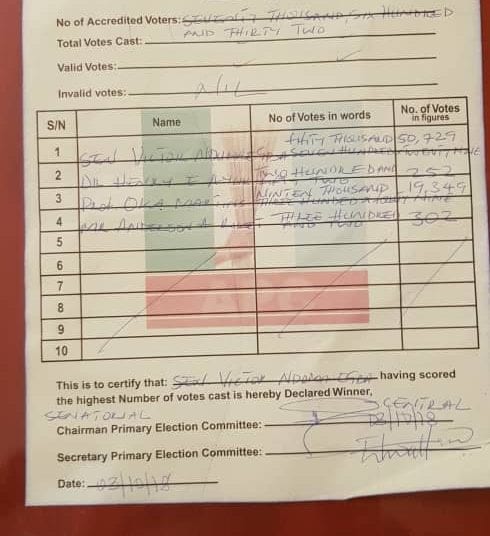 No of Accredited Voters: SEVENTY THOUSAND, SIX HUNDRED
AND THIRTY TWO
Total Votes Cast:
Valid Votes:
Invalid votes: NIL
S/N Name No of Votes in words No. of Votes in figures
1 SEN VICTOR NDOMA EGBA FIFTY THOUSAND SEVEN HUNDRED TWENTY NINE 50,729
2 DR HENRY E TWO HUNDRED AND TWO 252
3 Prof. OKA MARTINS NINTEN THOUSAND THREE HUNDRED NINE 19,349
4 MR ANDERSON A THREE HUNDRED AND TWO 302
5
6
7
8
9
10
APC
This is to certify that: SEN VICTOR NDOMA EGBA having scored
the highest Number of votes cast is hereby Declared Winner,
SENATORIAL CENTRAL
Chairman Primary Election Committee: 03/10/18
Secretary Primary Election Committee:
Date: 03/10/18